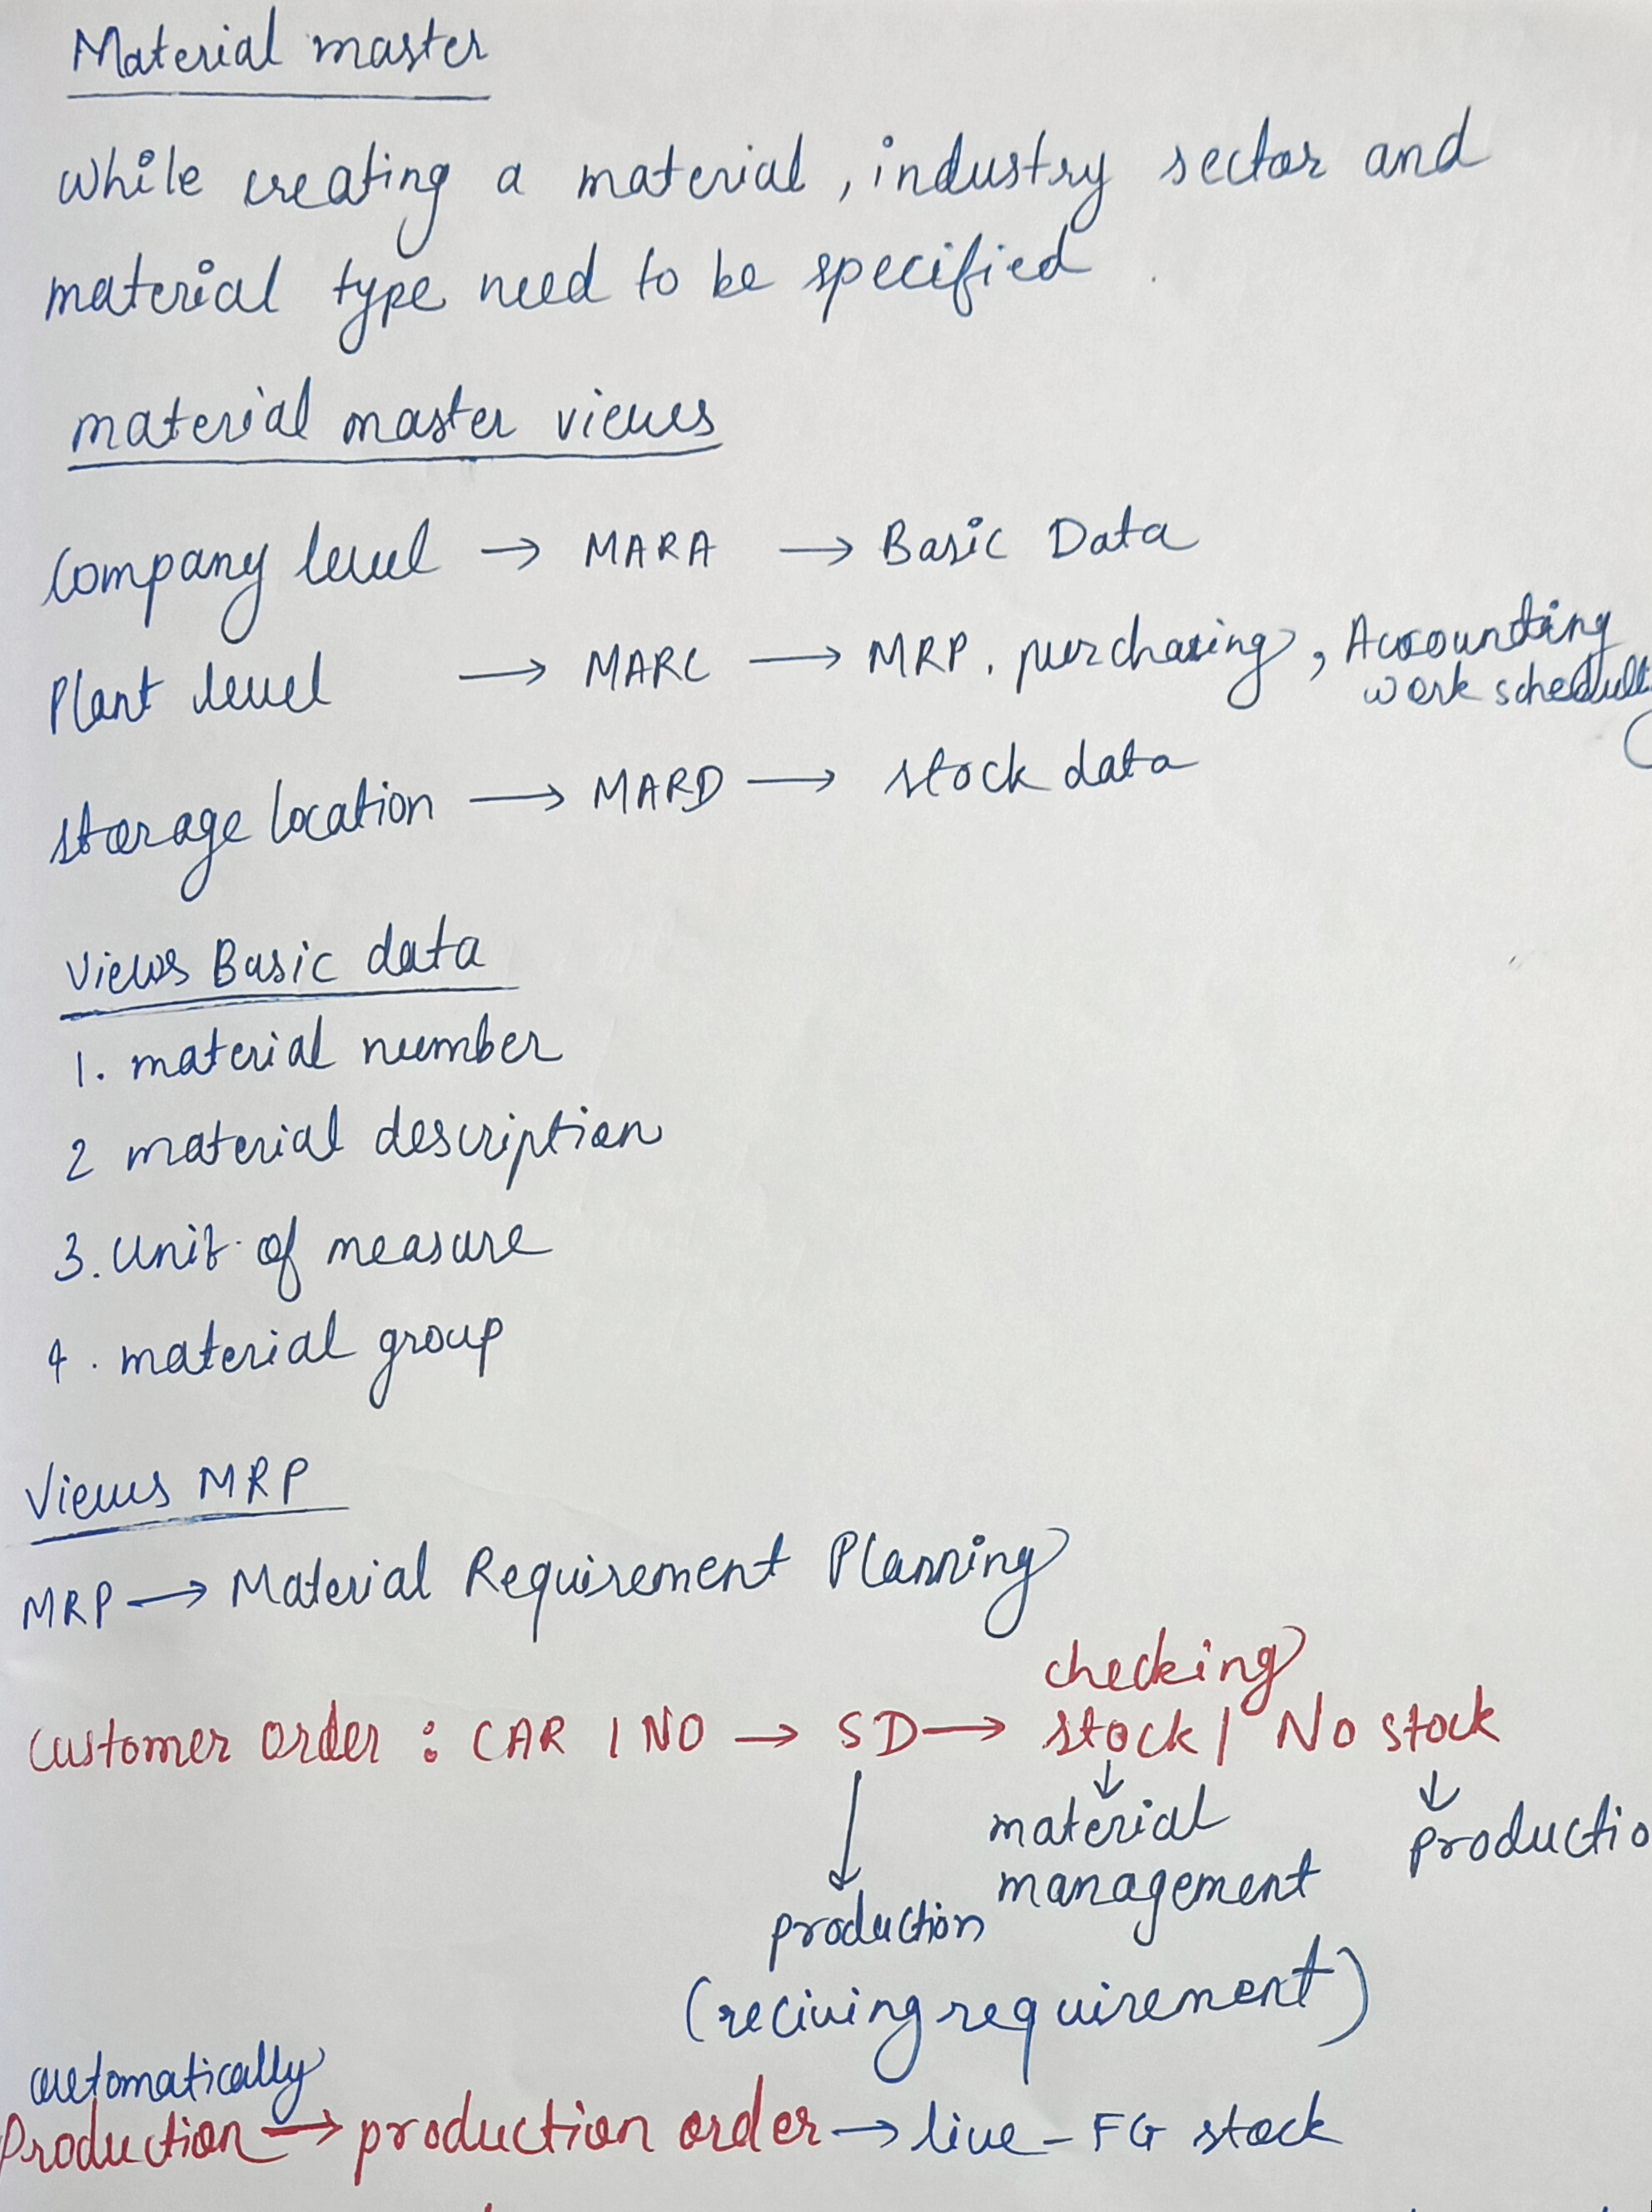 Material master
while creating a material, industry sector and
material type need to be specified.
material master views
Company level → MARA → Basic Data
Plant level → MARC → MRP, purchasing, Accounting
work scheduling
storage location → MARD → stock data
Views Basic data
1. material number
2 material description
3. Unit of measure
4. material group
Views MRP
MRP → Material Requirement Planning
checking
Customer order : CAR 1 NO → SD → stock / No stock
↓ ↓ ↓
material
productio
management
production
(reciving requirement)
automatically
Production → production order → live - FG stock